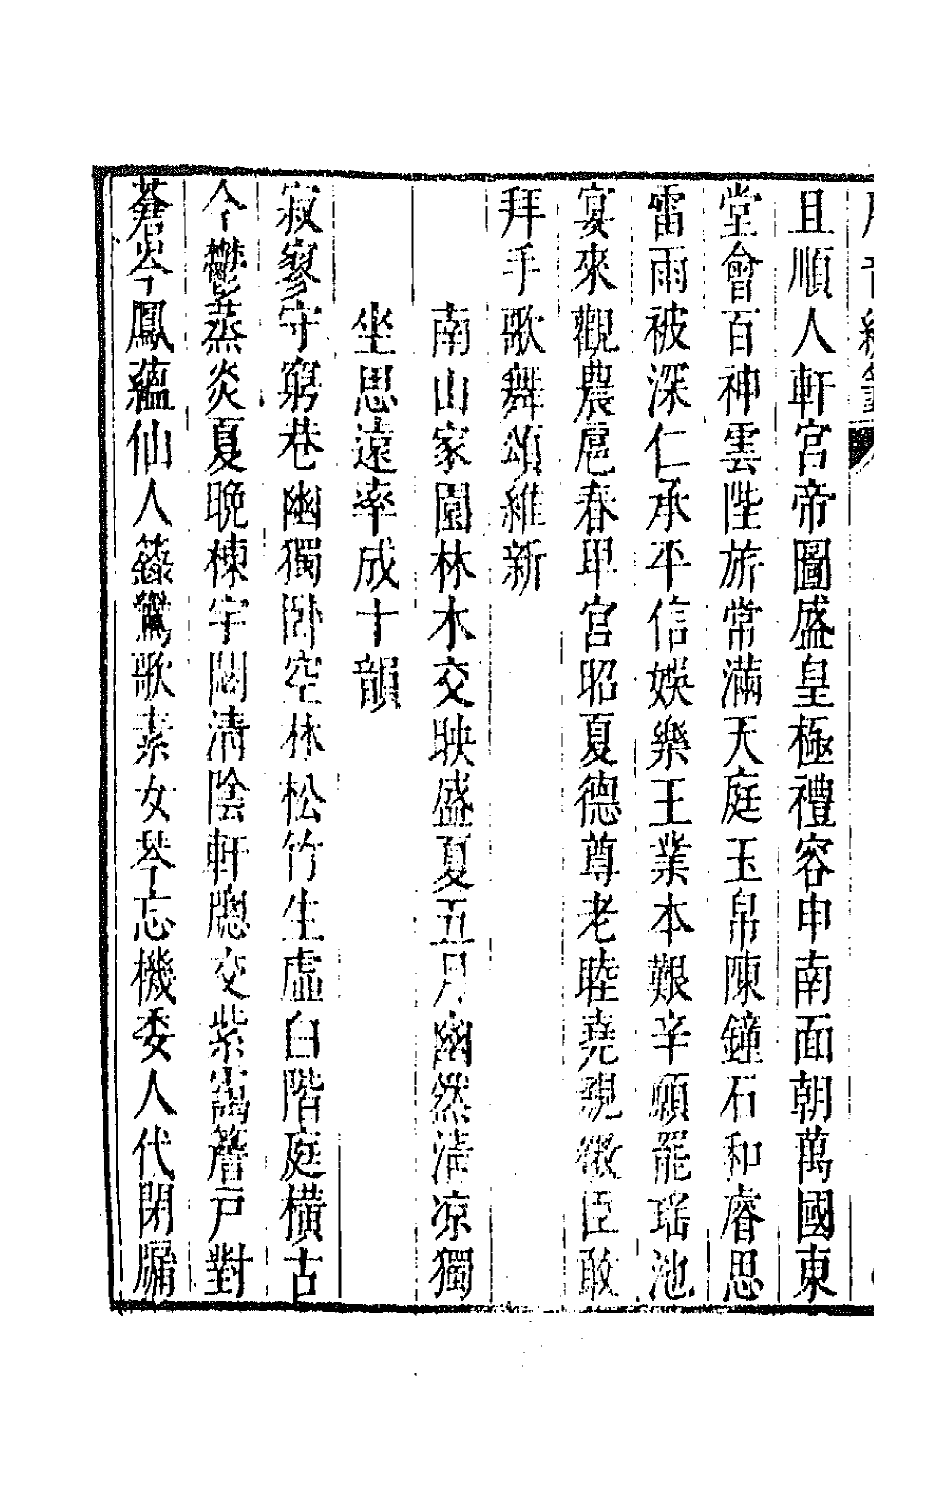 且順人軒宮帝圖盛皇極禮容申南面朝萬國東
堂會百神雲陛旂常滿天庭玉帛陳鐘石和睿思
雷雨被深仁承平信娛樂王業本艱辛願罷瑤池
宴來觀農扈春卑宮昭夏德尊老睦堯親微臣敢
拜手歌舞頌維新
南山家園林木交映盛夏五月幽然清凉獨
坐思遠率成十韻
寂寥守窮巷幽獨卧空林松竹生虛白階庭橫古
今鬱蒸炎夏晚棟宇閟清陰軒牕交紫靄簷戶對
蒼岑鳳蘊仙人籙鸞歌素女琴忘機委人代閉牖